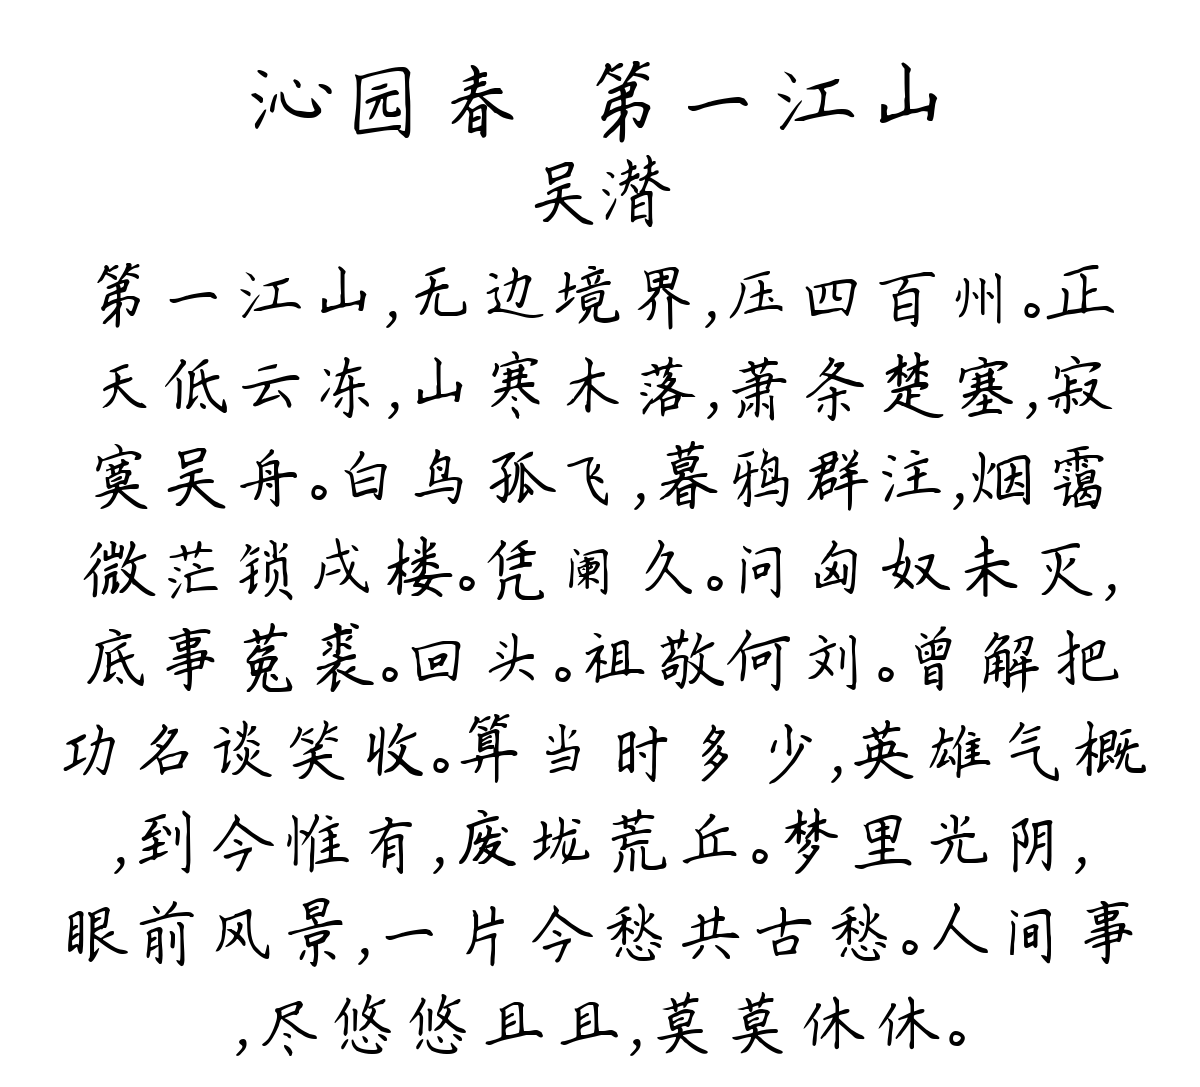 沁园春 第一江山
吴潜
第一江山,无边境界,压四百州。正
天低云冻,山寒木落,萧条楚塞,寂
寞吴舟。白鸟孤飞,暮鸦群注,烟霭
微茫锁戍楼。凭阑久。问匈奴未灭,
底事菟裘。回头。祖敬何刘。曾解把
功名谈笑收。算当时多少,英雄气概
,到今惟有,废垅荒丘。梦里光阴,
眼前风景,一片今愁共古愁。人间事
,尽悠悠且且,莫莫休休。